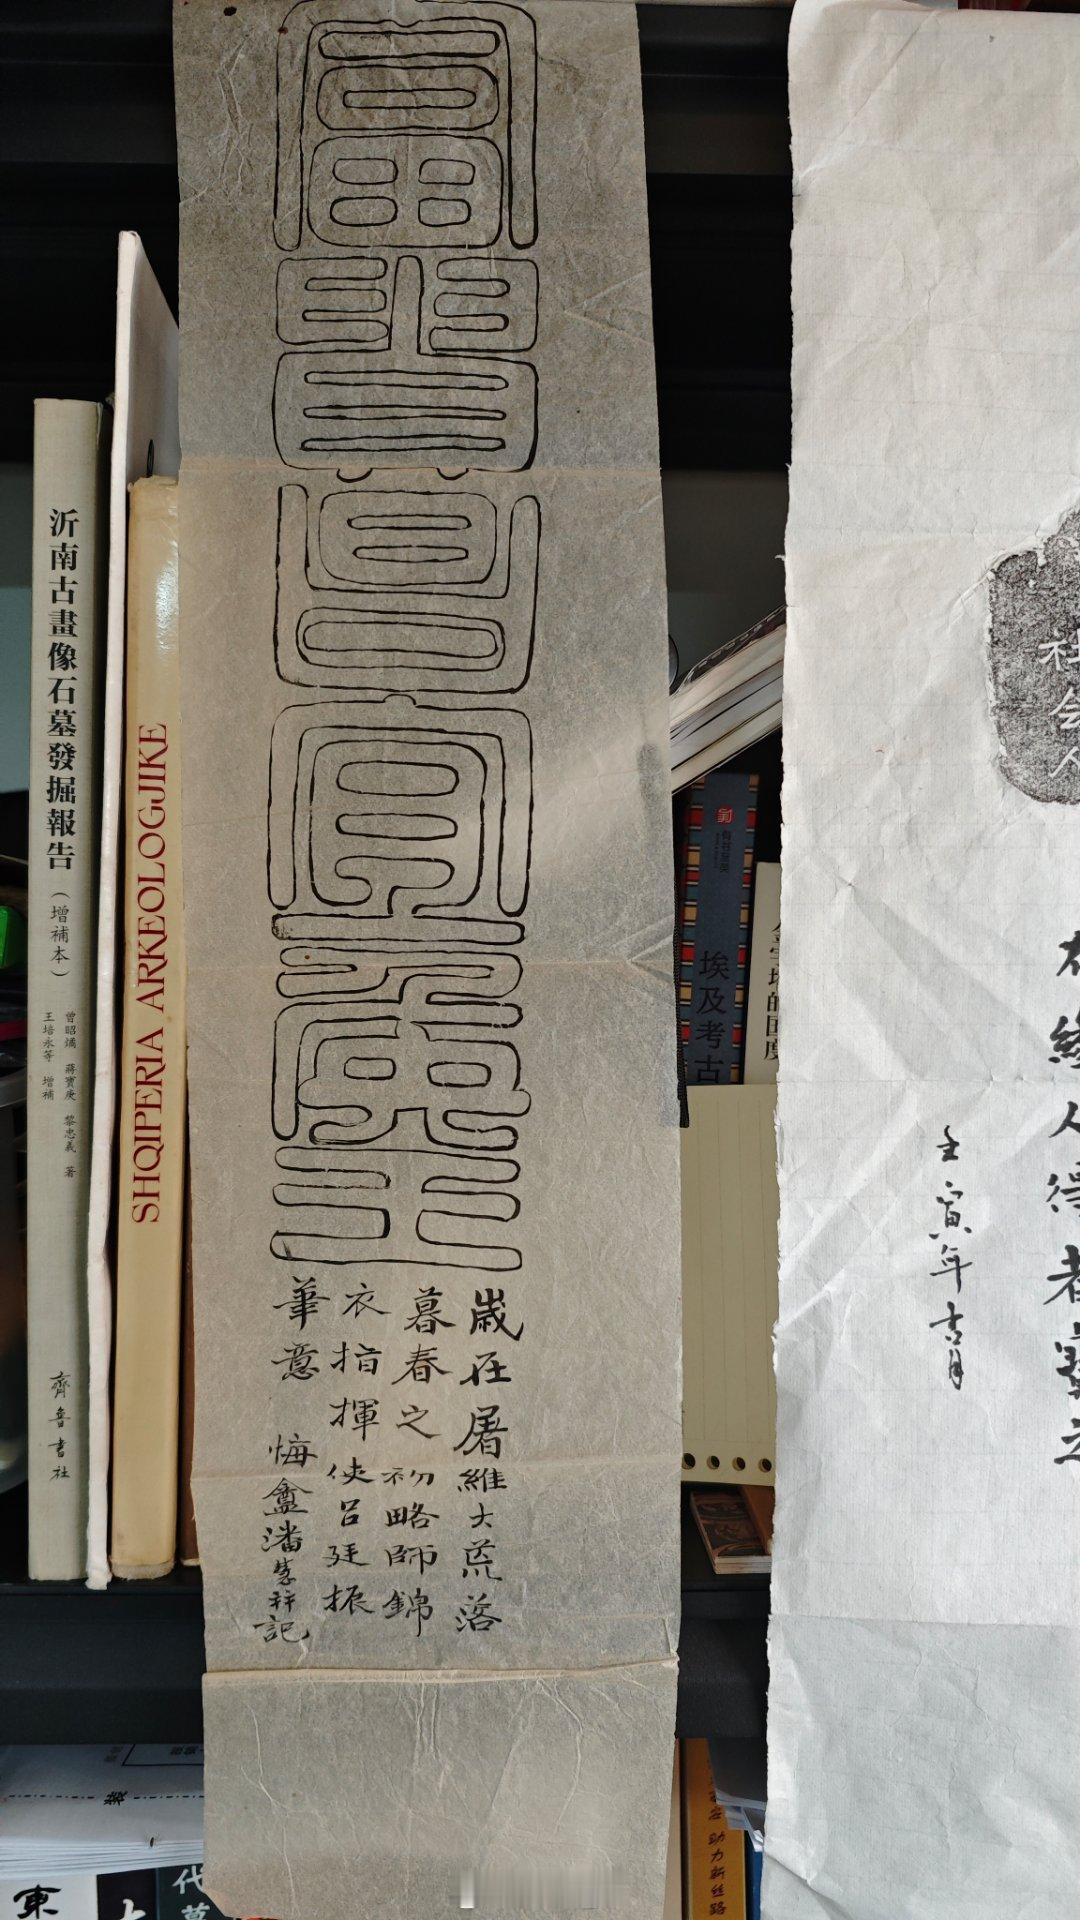 富貴昌宜侯王
歲在屠維大荒落
暮春之初略師錦
衣指揮使呂廷振
筆意 悔盦潘記
沂南古畫像石墓發掘報告（增補本）
曾昭燏 蔣寶庚 黎忠義 著
王培永等 增補
齊魯書社
SHQIPERIA ARKEOLOGJIKE
埃及考古
的国度
社会人
人得者寶之
壬寅年吉月
助力新丝路